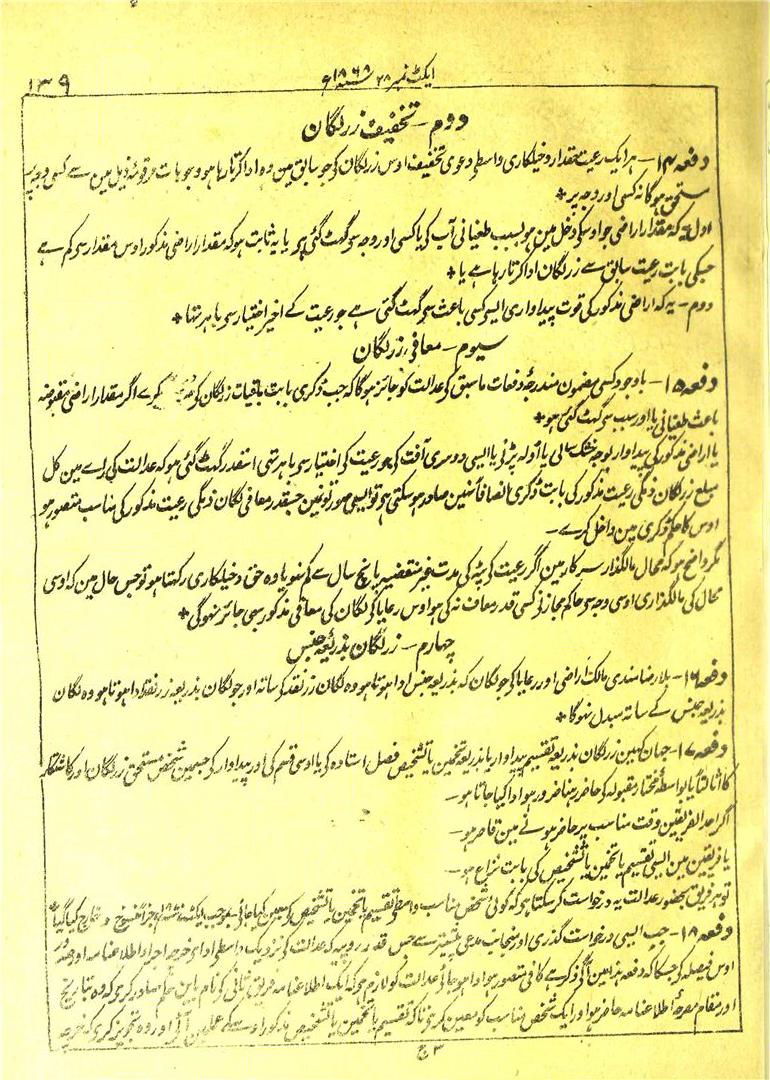 ایکٹ نمبر ۲۸ ۱۸۶۸ء
۱۳۹
دوم - تخفیف زر لگان
دفعہ ۱۴ - ہر ایک رعیت حقدار دخیلکاری واسطے دعوی تخفیف اوس زر لگان کی جو سابق مین وہ ادا کرتا رہا ہو وجوہات مرقومۂ ذیل مین سے کسی وجہ پر
مستحق ہوگا نہ کسی اور وجہ پر *
اول یہ کہ مقدار اراضی جو اوسکی دخل مین ہو بسبب طغیانی آب کی یا کسی اور وجہ سی گھٹ گئی ہی یا یہ ثابت ہو کہ مقدار اراضی مذکور اوس مقدار سی کم ہے
جسکی بابت رعیت سابق سے زر لگان ادا کرتا رہا ہے یا *
دوم - یہ کہ اراضی مذکور کی قوت پیداواری ایسی کسی باعث سی گھٹ گئی ہے جو رعیت کے اختیار سی باہر تھا *
سیوم - معافی زر لگان
دفعہ ۱۵ - باوجود کسی مضمون مندرجۂ دفعات ماسبق کی عدالت کو جائز ہوگا کہ جب ڈگری بابت باقیات زر لگان کی کرے اگر مقدار اراضی مقبوضہ
باعث طغیانی یا اور سبب سی گھٹ گئی ہو *
یا اراضی مذکور کی پیداوار بوجہ خشک سالی یا اولہ پڑنی یا ایسی دوسری آفت کی جو رعیت کی اختیار سی باہر تھی اسقدر گھٹ گئی ہو کہ عدالت کی راے مین کل
مبلغ زر لگان ذمگی رعیت مذکور کی بابت ڈگری انصافاً نہین صادر ہوسکتی ہی تو ایسی صورتونمین جسقدر معافی لگان ذمگی رعیت مذکور کی مناسب متصور ہو
اوس کا حکم ڈگری مین داخل کرے -
مگر واضح ہو کہ محال مالگذار سرکار مین اگر رعیت کی پٹہ کی مدت غیر منقضیہ پانچ سال سے کم نہو یا وہ حق دخیلکاری رکھتا ہو تو جس حال مین کہ اوسی
محال کی مالگذاری اوسی وجہ سی حاکم مجاز نی کسی قدر معاف نہ کی ہو اوس رعایا کو لگان کی معافی مذکور بھی جائز نہوگی *
چہارم - زر لگان بذریعہ جنس
دفعہ ۱۶ - بلا رضامندی مالک اراضی اور رعایا کی جو لگان کہ بذریعہ جنس ادا ہوتا ہو وہ لگان زر نقد کی ساتھ اور جو لگان بذریعہ زر نقد ادا ہوتا ہو وہ لگان
بذریعہ جنس کے ساتھ مبدل نہوگا *
دفعہ ۱۷ - جہان کہین زر لگان بذریعہ تقسیم پیداوار یا بذریعہ تخمین یا تشخیص فصل استادہ کی یا اوسی قسم کی اور پیداوار کی جسمین شخص مستحق زر لگان اور کاشتکار
کا اثالتاً یا بواسطۂ مختار مقبولہ کی حاضر رہنا ضرور ہو ادا کیا جاتا ہو -
اگر احد الفریقین وقت مناسب پر حاضر ہونے مین قاصر ہو -
یا فریقین مین ایسی تقسیم یا تخمین یا تشخیص کی بابت نزاع ہو -
تو ہر فریق بحضور عدالت یہ درخواست کرسکتا ہی کہ کوئی شخص مناسب واسطی تقسیم یا تخمین یا تشخیص کی معین کیا جائی بموجب ایکٹ جزاً منسوخ و خارج کیا گیا
دفعہ ۱۸ - جب ایسی درخواست گذری اور منجانب مدعی پیشتر سے جس قدر روپیہ کہ عدالت کی نزدیک واسطی اداے خرچہ اجراے اطلاعنامہ اور صدور
اوس فیصلہ کی جسکا کہ دفعہ ہذا مین آگی ذکر ہے کافی متصور ہو ادا ہو جائی عدالت کو لازم ہی کہ ایک اطلاعنامہ فریق ثانی کی نام باین حکم صادر کری کہ وہ بتاریخ
اور مقام مصرحۂ اطلاعنامہ حاضر ہو اور ایک شخص مناسب کو معین کری تاکہ تقسیم یا تخمین یا تشخیص مذکور اوسکے عمل مین آئی اور وہ تجویز کری کہ خرچہ
۳ ج